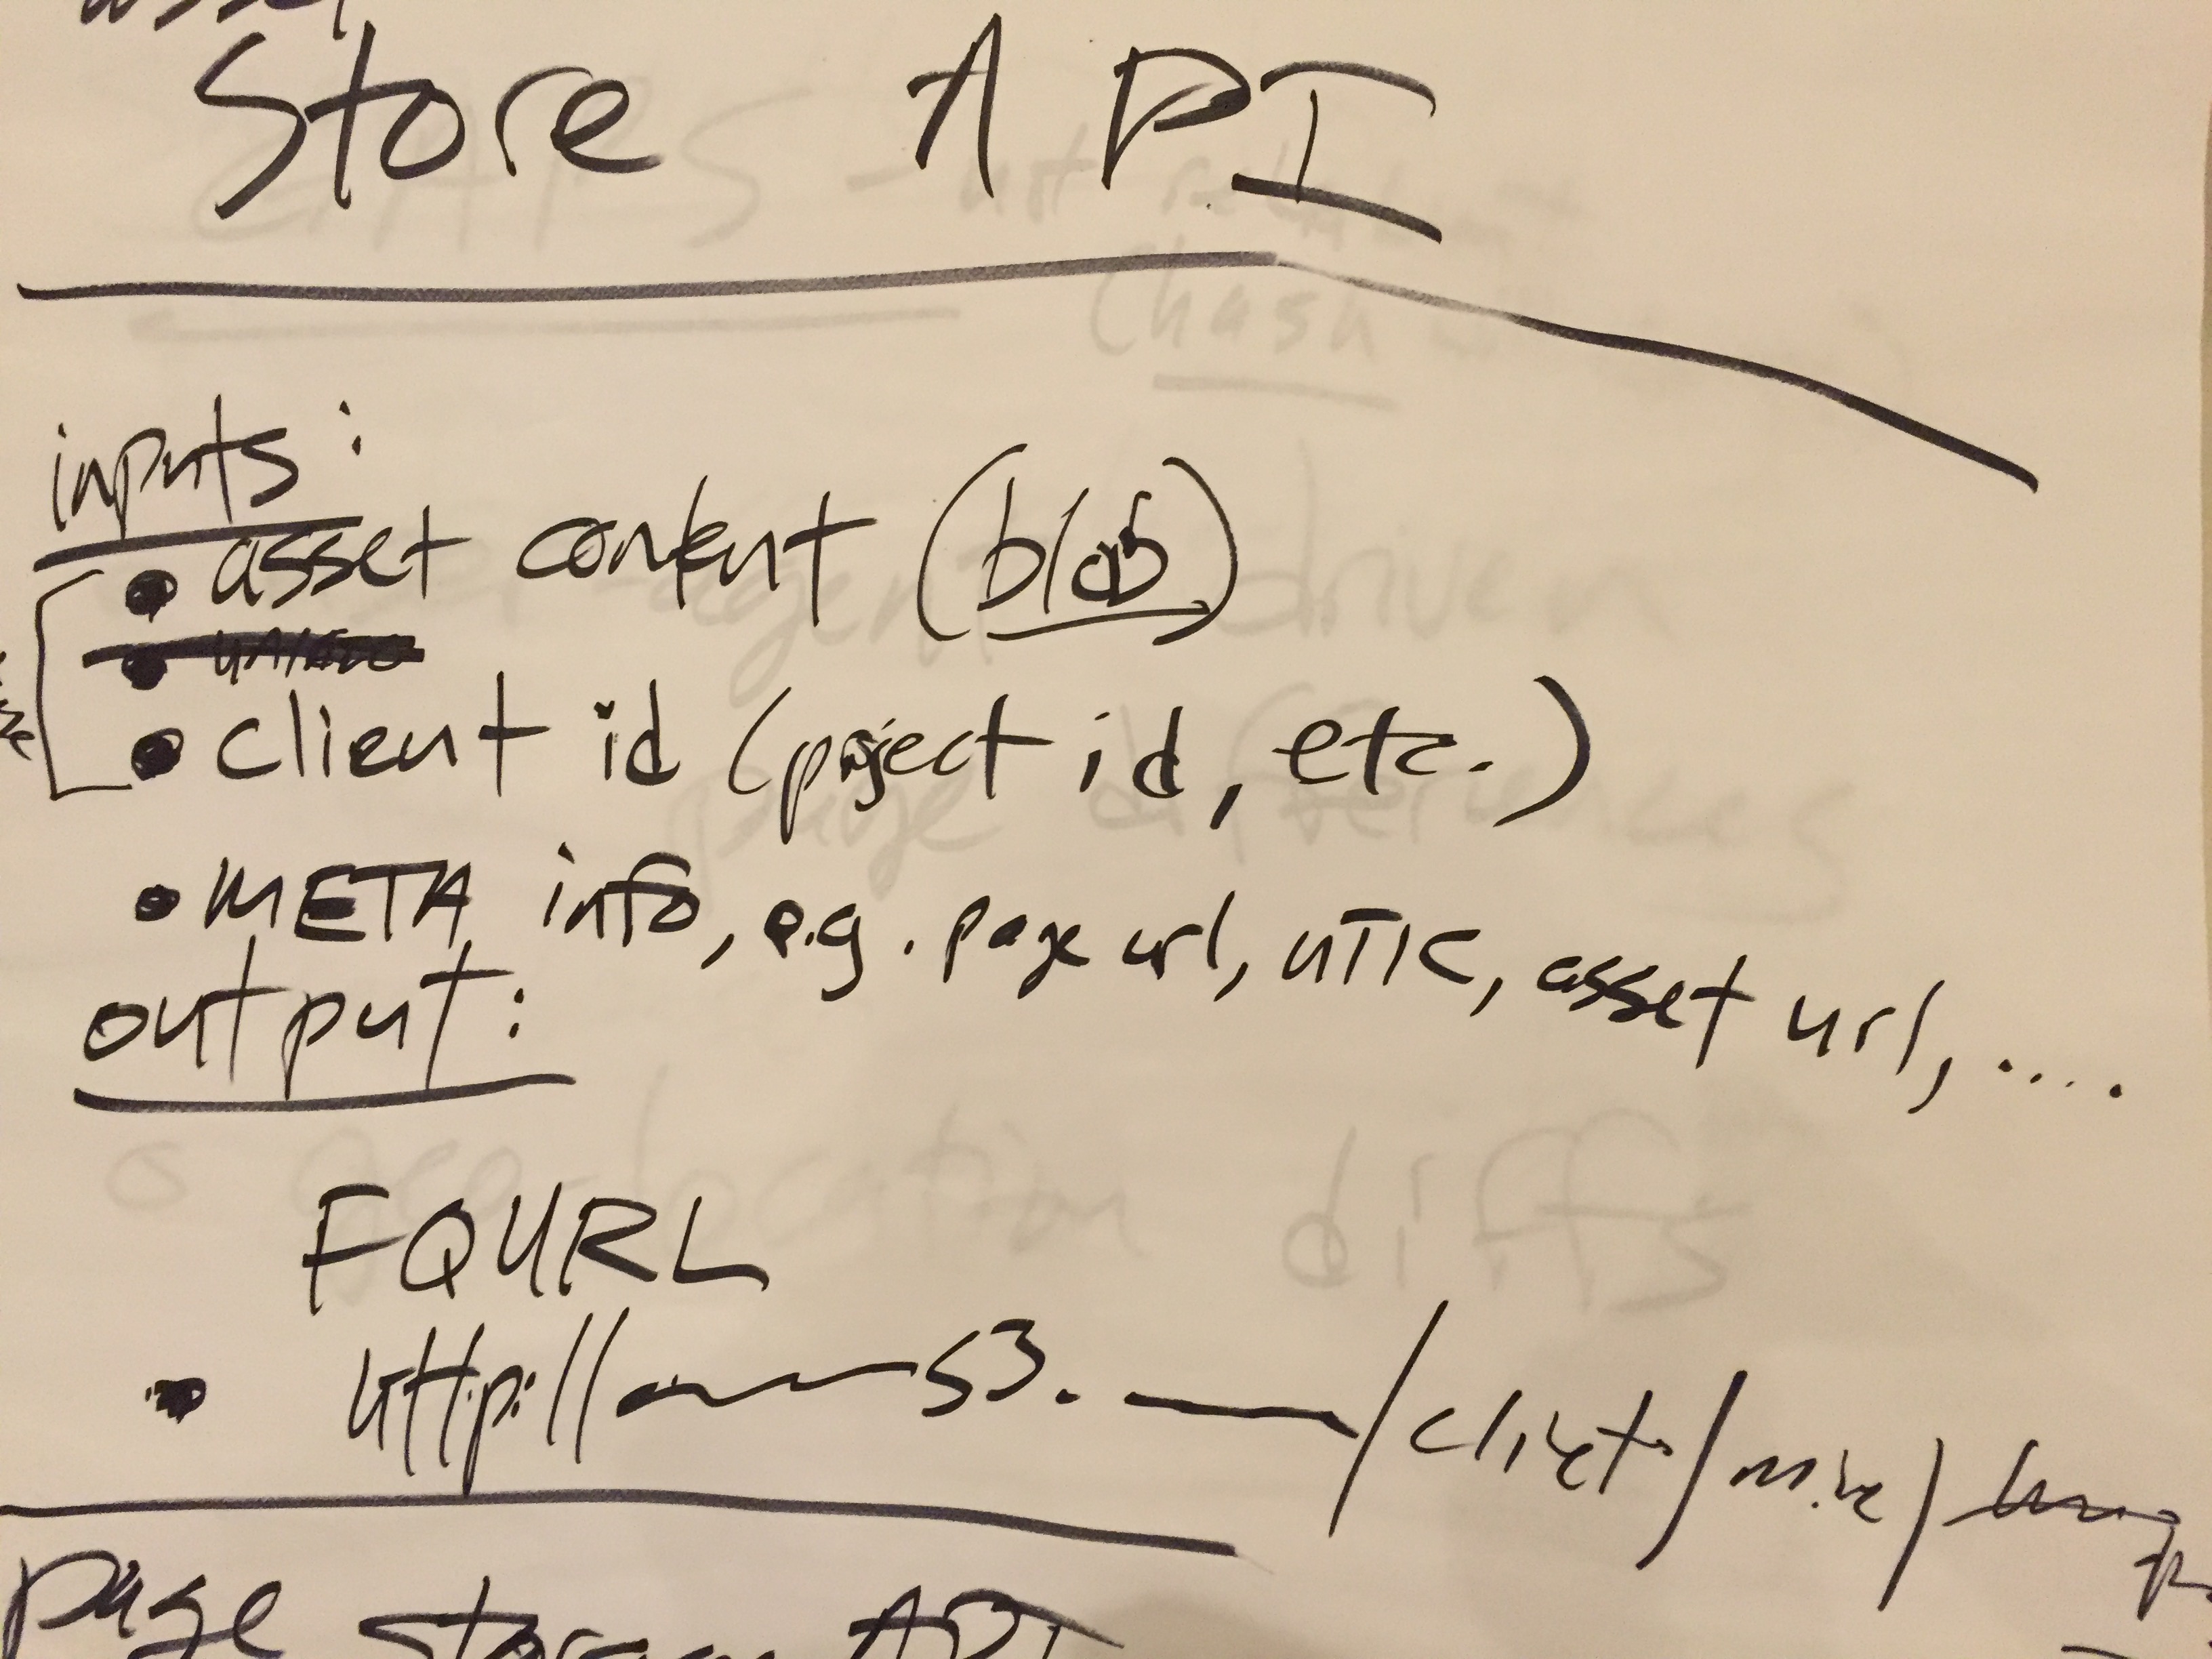 asset
Store API
inputs:
• asset content (blob)
• client id (project id, etc.)
• META info, e.g. page url, UTK, asset url, ....
output:
FQURL
• http:// s3. /client/
Page Storage API